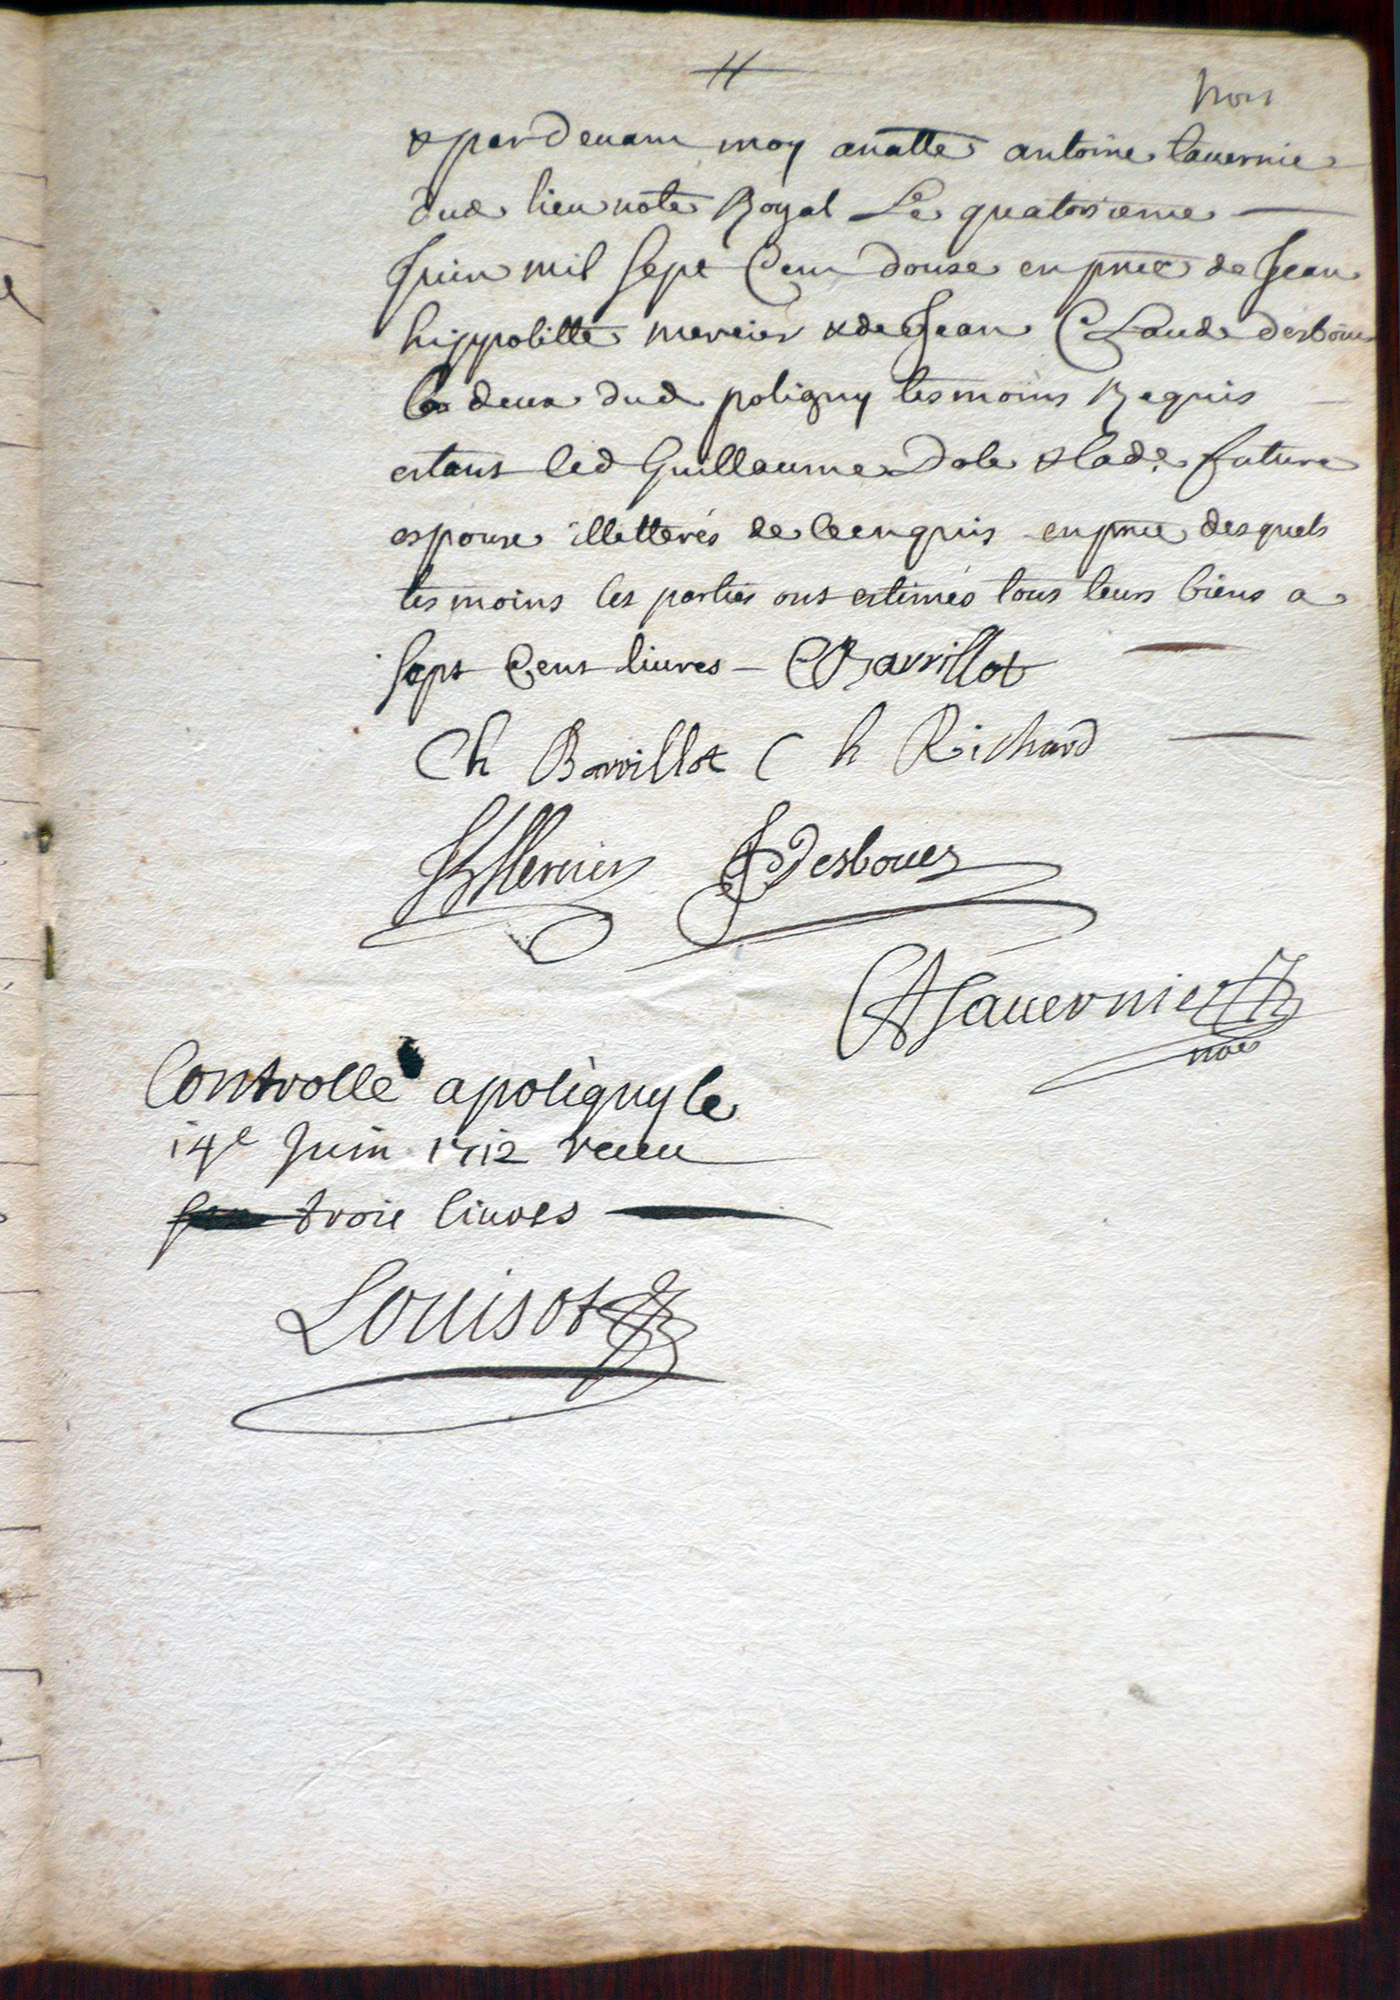 trois
& pardevant moy anatte antoine tauernie
dud lieu note Royal Le quatorsieme
Juin mil sept Cent douse en pnce de Jean
hippolitte mercier & de Jean Claude desboües
les deux dud poligny tesmoins Requis
estant led Guillaume Dole & lade future
espouse illetterés de ce enquis en pnce desquels
tesmoins les parties ont estimés tous leurs biens a
sept Cent liures CBarrillot
Ch Barrillot C h Richard
JHMercier JCDesboues
CATauernier
noe
Controllé a poligny le
14e Juin 1712 receu
troie liures
Louisot